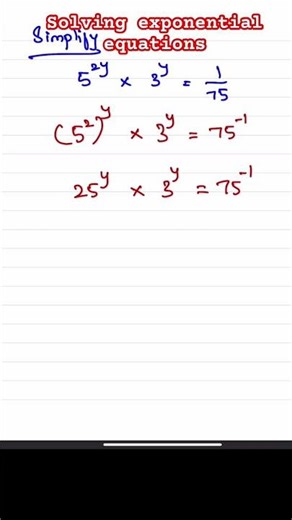 Solving exponential
Simplify equations
5^{2y} × 3^y = 1/75
(5^2)^y × 3^y = 75^{-1}
25^y × 3^y = 75^{-1}